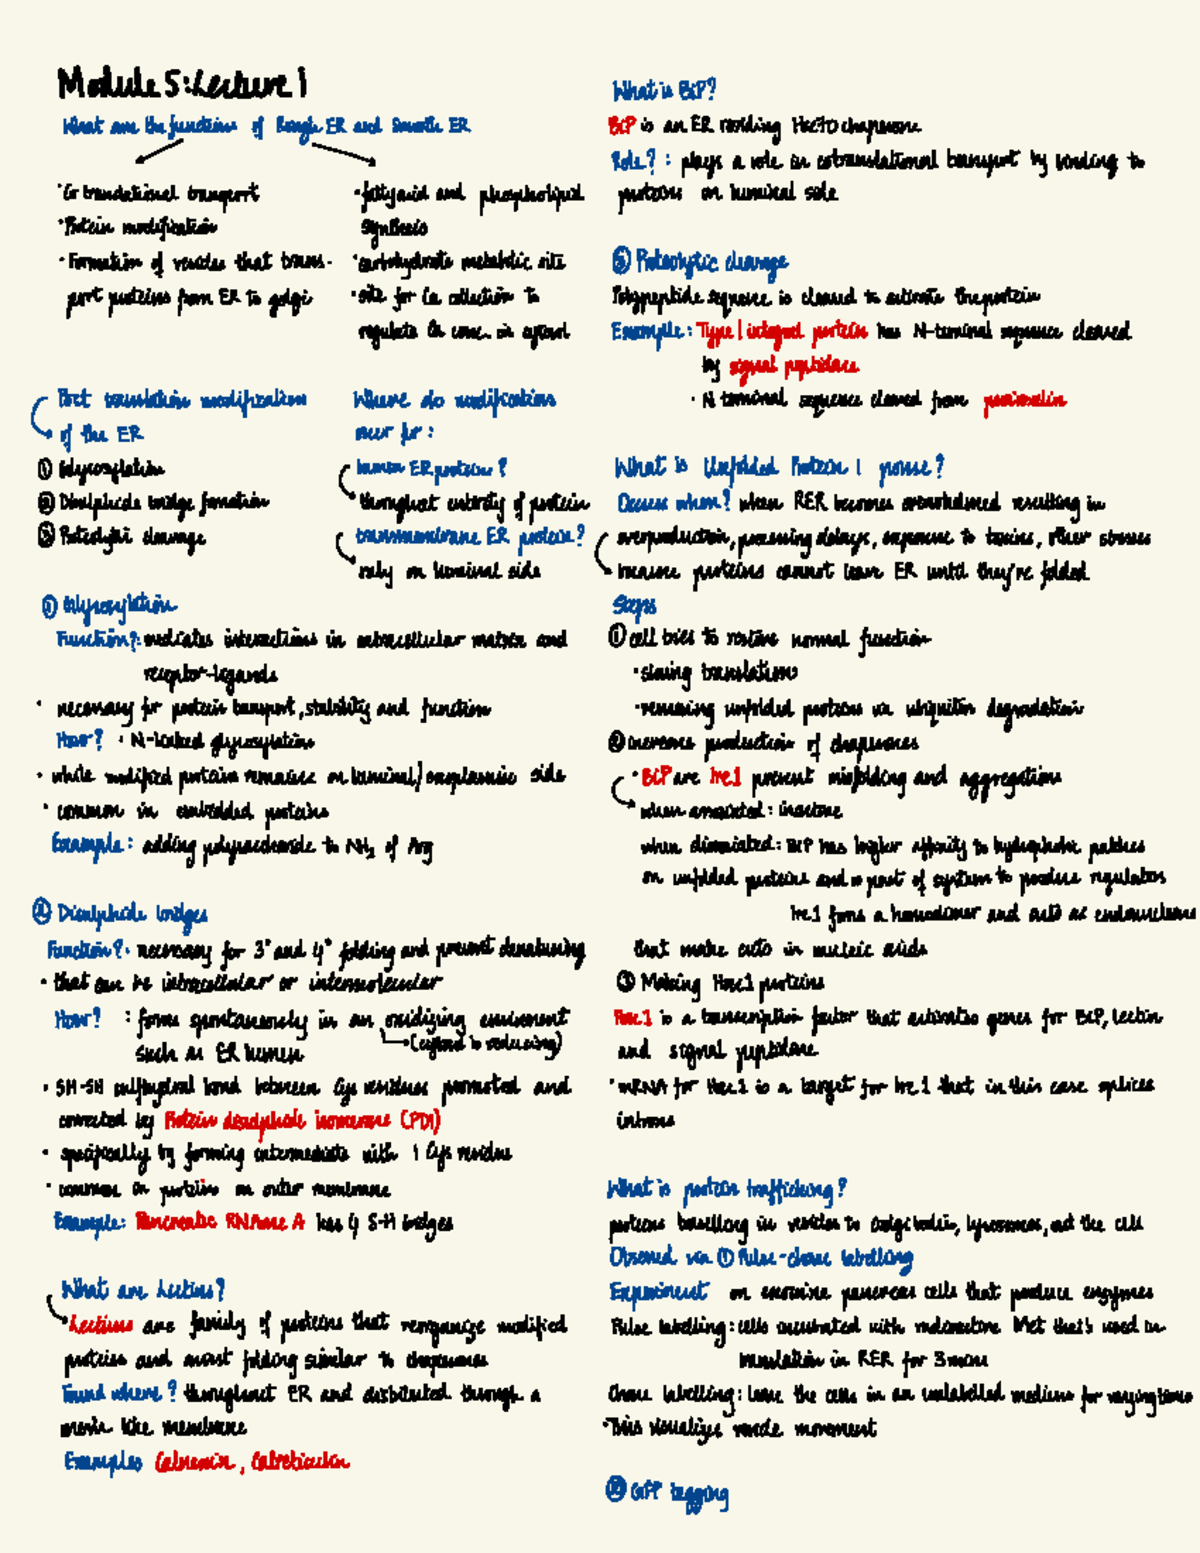 Module 5: Lecture 1
What are the functions of Rough ER and Smooth ER
· Co translational transport
· Protein modification
· Formation of vesicles that trans-
port proteins from ER to golgi
· fatty acid and phospholipid
synthesis
· carbohydrate metabolic site
· site for Ca collection to
regulate Ca conc. in cytosol
Post translation modification
of the ER
① Glycosylation
② Disulphide bridge formation
③ Proteolytic cleavage
Where do modifications
occur for:
lumen ER proteins?
throughout entirety of protein
transmembrane ER protein?
only on luminal side
① Glycosylation
Function?: mediates interactions in extracellular matrix and
receptor-ligands
· necessary for protein transport, stability and function
How? · N-linked glycosylation
· while modified protein remains on luminal/exoplasmic side
· common in embedded proteins
Example: adding polysaccharide to NH₂ of Arg
② Disulphide bridges
Function?: necessary for 3° and 4° folding and prevent denaturing
· that can be intracellular or intermolecular
How? : forms spontaneously in an oxidizing environment
such as ER lumen (cytosol is reducing)
· SH-SH sulfhydral bond between Cys residues promoted and
corrected by Protein disulphide isomerase (PDI)
· specifically by forming intermediate with 1 Cys residue
· common in proteins on outer membrane
Example: Pancreatic RNAase A has 4 S-H bridges
What are Lectins?
Lectins are family of proteins that reorganize modified
proteins and assist folding similar to chaperones
Found where? throughout ER and distributed through a
like membrane
Examples Calnexin, Calreticulin
What is BiP?
BiP is an ER residing Hsc70 chaperone
Role? : plays a role in cotranslational transport by binding to
proteins on luminal side
③ Proteolytic cleavage
Polypeptide sequence is cleaved to activate the protein
Example: Type 1 integral protein has N-terminal sequence cleaved
by signal peptidase
· N terminal sequence cleaved from
What is Unfolded Protein
Occurs when? when RER becomes overwhelmed resulting in
overproduction, processing delays, exposure to toxins, other stresses
because proteins cannot leave ER until they're folded
Steps
① cell tries to restore normal function
· slowing translation
· removing unfolded proteins via ubiquitin degradation
② increase production of chaperones
· BiP are Ire1 prevent misfolding and aggregation
when associated: inactive
when dissociated: BiP has higher affinity to hydrophobic patches
on unfolded proteins and is part of system to produce regulators
Ire1 forms a homodimer and acts as endonuclease
that make cuts in nucleic acids
③ Making Hac1 proteins
Hac1 is a transcription factor that activates genes for BiP, Lectin
and signal peptidase
· mRNA for Hac1 is a target for Ire1 that in this case splices
introns
What is protein trafficking?
proteins travelling in vesicles to Golgi bodies, lysosomes, out the cell
Observed via ① Pulse-chase labelling
Experiment on exocrine pancreas cells that produce enzymes
Pulse labelling: cells incubated with radioactive Met that's used in
translation in RER for 3 mins
Chase labelling: leave the cells in an unlabelled medium for varying times
· This visualizes vesicle movement
② GFP tagging